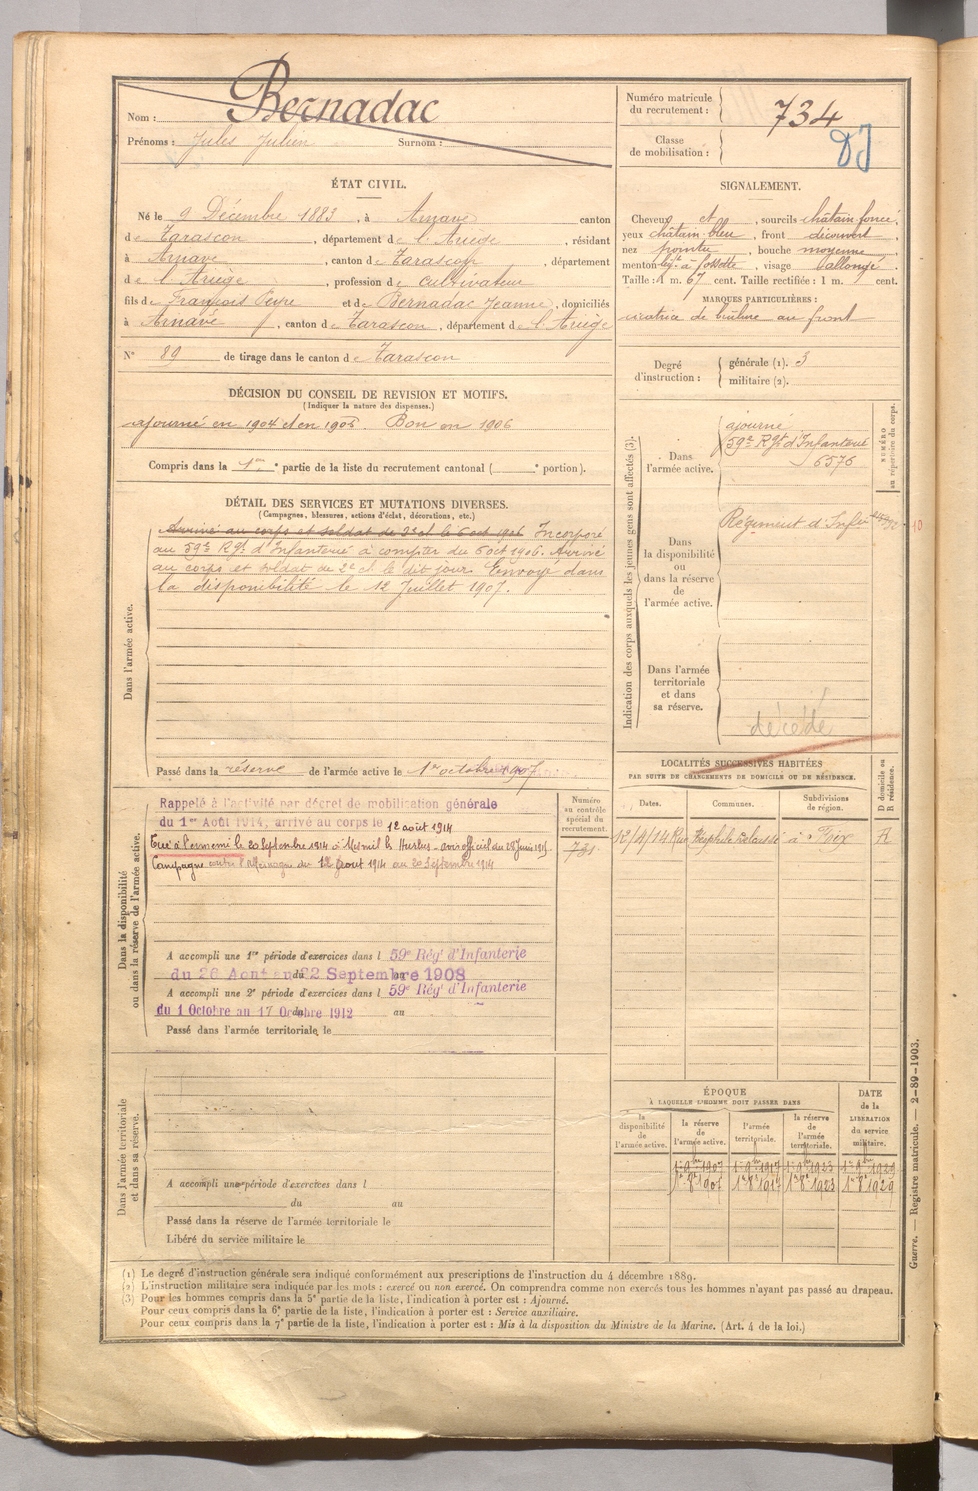 Nom : Bernadac
Prénoms : Jules Julien Surnom :
Numéro matricule du recrutement : 734
Classe de mobilisation :
ÉTAT CIVIL.
Né le 9 Décembre 1883, à Arnave canton
de Tarascon, département de l'Ariège, résidant
à Arnave, canton de Tarascon, département
de l'Ariège, profession de cultivateur
fils de François Peyre et de Bernadac Jeanne, domiciliés
à Arnave, canton de Tarascon, département de l'Ariège
N° 89 de tirage dans le canton de Tarascon
SIGNALEMENT.
Cheveux et, sourcils châtain foncé,
yeux châtain-bleu, front découvert,
nez pointu, bouche moyenne,
menton à fossette, visage allongé.
Taille : 1 m. 67 cent. Taille rectifiée : 1 m. cent.
MARQUES PARTICULIÈRES :
cicatrice de brûlure au front
Degré d'instruction : générale (1). 3
militaire (2).
DÉCISION DU CONSEIL DE REVISION ET MOTIFS.
(Indiquer la nature des dispenses.)
ajourné en 1904 et en 1905. Bon en 1906
Compris dans la 1re partie de la liste du recrutement cantonal ( e portion).
DÉTAIL DES SERVICES ET MUTATIONS DIVERSES.
(Campagnes, blessures, actions d'éclat, décorations, etc.)
Dans l'armée active.
Arrivé au corps et soldat de 2e cl le 6 oct 1906 Incorporé
au 59e Rgt d'Infanterie à compter du 6 oct 1906. Arrivé
au corps et soldat de 2e cl le dit jour. Envoyé dans
la disponibilité le 12 Juillet 1907.
Passé dans la réserve de l'armée active le 1er octobre 1907
Indication des corps auxquels les jeunes gens sont affectés (3).
NUMÉRO au répertoire du corps.
Dans l'armée active.
ajourné
59e Rgt d'Infanterie
6576
Dans la disponibilité ou dans la réserve de l'armée active.
Régiment d'Infie
Dans l'armée territoriale et dans sa réserve.
décédé
LOCALITÉS SUCCESSIVES HABITÉES
PAR SUITE DE CHANGEMENTS DE DOMICILE OU DE RÉSIDENCE.
D domicile ou R résidence.
Dates. Communes. Subdivisions de région.
12/4/14 Rue à Foix R
Dans la disponibilité ou dans la réserve de l'armée active.
Numéro au contrôle spécial du recrutement.
731
Rappelé à l'activité par décret de mobilisation générale
du 1er Août 1914, arrivé au corps le 12 août 1914
Tué à l'ennemi le 20 Septembre 1914 à Mesnil les Hurlus - avis officiel du 28 juin 1915.
Campagne contre l'Allemagne du 12 août 1914 au 20 Septembre 1914
A accompli une 1re période d'exercices dans l 59e Régt d'Infanterie
du 26 Août au 22 Septembre 1908
A accompli une 2e période d'exercices dans l 59e Régt d'Infanterie
du 1 Octobre au 17 Octobre 1912 au
Passé dans l'armée territoriale le
Dans l'armée territoriale et dans sa réserve.
A accompli une période d'exercices dans l
du au
Passé dans la réserve de l'armée territoriale le
Libéré du service militaire le
ÉPOQUE
À LAQUELLE L'HOMME DOIT PASSER DANS
DATE de la LIBÉRATION du service militaire.
la disponibilité de l'armée active. la réserve de l'armée active. l'armée territoriale. la réserve de l'armée territoriale.
1er 9bre 1907 1er 9bre 1917 1er 9bre 1923 1er 9bre 1929
1er 8bre 1907 1er 8bre 1917 1er 8bre 1923 1er 8bre 1929
(1) Le degré d'instruction générale sera indiqué conformément aux prescriptions de l'instruction du 4 décembre 1889.
(2) L'instruction militaire sera indiquée par les mots : exercé ou non exercé. On comprendra comme non exercés tous les hommes n'ayant pas passé au drapeau.
(3) Pour les hommes compris dans la 5e partie de la liste, l'indication à porter est : Ajourné.
Pour ceux compris dans la 6e partie de la liste, l'indication à porter est : Service auxiliaire.
Pour ceux compris dans la 7e partie de la liste, l'indication à porter est : Mis à la disposition du Ministre de la Marine. (Art. 4 de la loi.)
Guerre. — Registre matricule. — 2-89-1903.